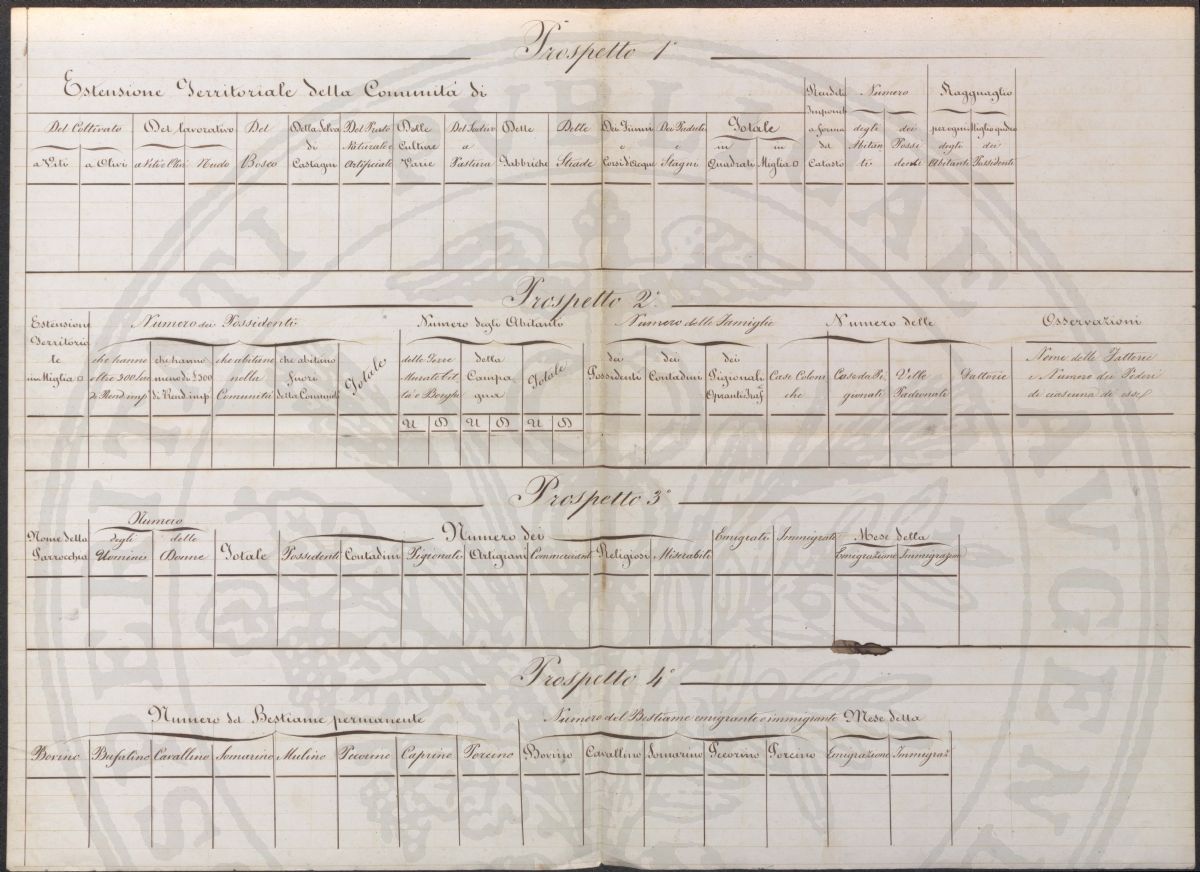 Prospetto 1°
Estensione Territoriale della Comunità di
Rendita Imponib a forma del Catasto
Numero
Ragguaglio
Del Coltivato
Del lavorativo
Del Bosco
Della Selva di Castagni
Del Prato Naturale e Artificiale
Delle Culture Varie
Del Sodivo a Pastura
Delle Fabbriche
Delle Strade
Dei Fiumi e Corsi d'Acque
Dei Paduli e Stagni
Totale
degli Abitanti
dei Possidenti
per ogni Miglio quadro
a Viti
a Olivi
a Viti e Olivi
Nudo
in Quadrati
in Miglia □
degli Abitanti
dei Possidenti
Prospetto 2°
Estensione Territoriale in Miglia □
Numero dei Possidenti
Numero degli Abitanti
Numero delle Famiglie
Numero delle
Osservazioni
che hanno oltre 300 lire di Rend imp
che hanno meno di £300 di Rend imp
che abitano nella Comunità
che abitano fuori della Comunità
Totale
delle Terre Murate Città e Borghi
della Campagna
Totale
dei Possidenti
dei Contadini
dei Pigionali e Opranti
Case Coloniche
Case da Pigionali
Ville Padronali
Fattorie
Nome delle Fattorie e Numero dei Poderi di ciascuna di esse
U D U D U D
Prospetto 3°
Nome della Parrocchia
Numero
Numero dei
Emigrati
Immigrati
Mese della
degli Uomini
delle Donne
Totale
Possidenti
Contadini
Pigionali
Artigiani
Commercianti
Religiosi
Miserabili
Emigrazione
Immigrazione
Prospetto 4°
Numero del Bestiame permanente
Numero del Bestiame emigrante e immigrante
Mese della
Bovino
Bufalino
Cavallino
Somarino
Mulino
Pecorino
Caprino
Porcino
Bovino
Cavallino
Somarino
Pecorino
Porcino
Emigrazione
Immigraz